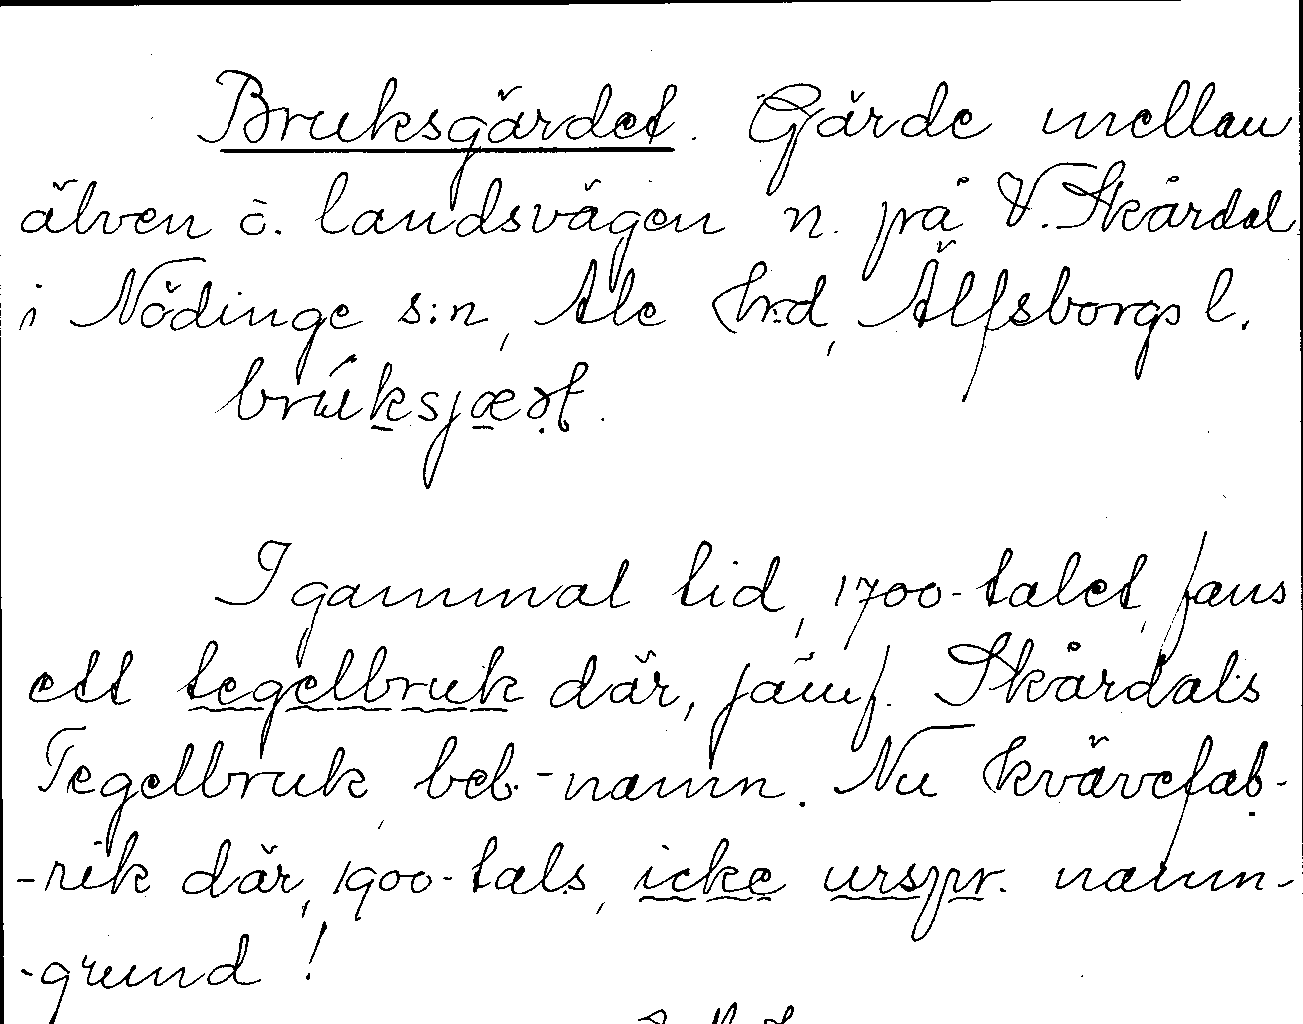 Bruksgärdet. Gärde mellan
älven o. landsvägen n. på V. Skårdal
i Nödinge s:n, Ale hrd, Älfsborgs l.
I gammal tid, 1700-talet, fans
ett tegelbruk där, jämf. Skårdals
Tegelbruk, beb.-namn. Nu kvävefab-
-rik där, 1900-tals, icke urspr. namn-
-grund!